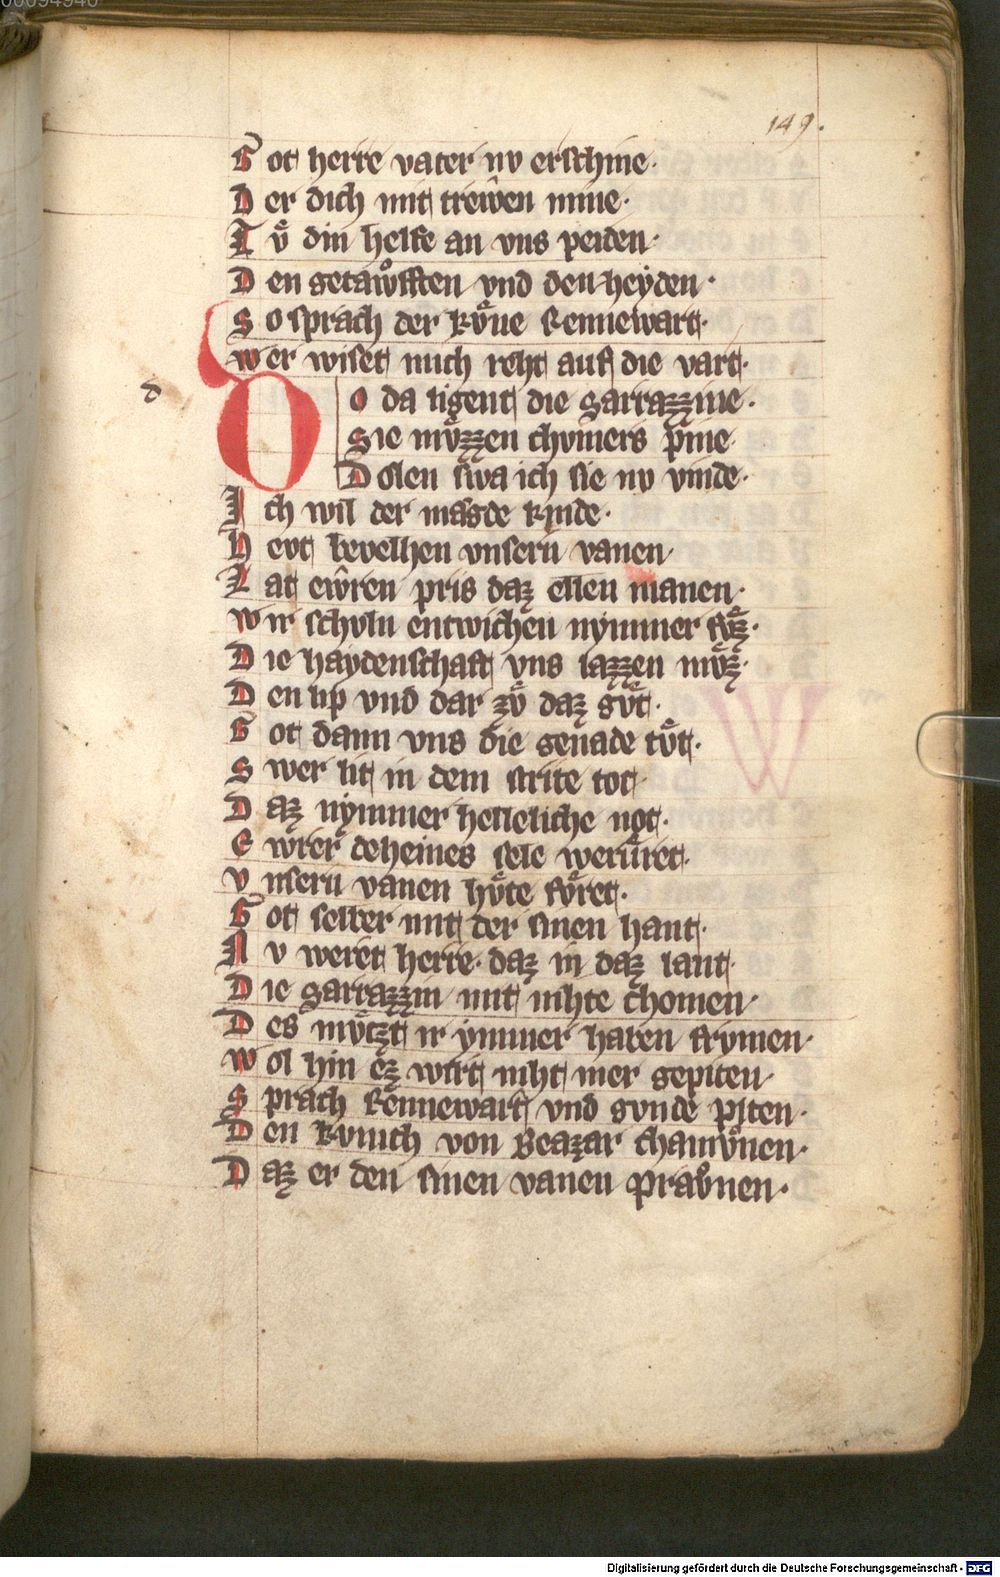 149.
Got herre vater nv erschine·
Der dich mit trewͤen mine·
Tvͦ din helfe an vns peiden·
Den getawͦfften vnd den heyden·
So sprach der kvͤne Rennewart·
wer wiset mich reht auf die vart·
d
Do da ligent die sarrazzine·
Sie mvͤzzen chvmers pine
Dolen swa ich sie nv vinde·
Ich wil der magde kinde·
Hevt bevelhen vnsern vanen
Lat ewͤren pris daz ellen manen·
Wir schvln entwichen nymmer fvͦz·
Die haydenschaft vns lazzen mvͦz·
Den lip vnd dar zvͦ daz gvͦt·
Got dann vns die genade tvͦt·
Swer lit in dem strite tot
Daz nymmer helleliche not·
Ewrer deheines sele werv̂ret·
Vnsern vanen hvͤte fvͤret·
Got selber mit der sinen hant·
Nv weret herre· daz in daz lant·
Die Sarrazzin mit nihte chomen·
Des mvͤtzt ir ymmer haben frvmen·
Wol hin ez wirt niht mer gepiten·
Sprach Rennewart vnd gvnde piten·
Den kvnich von Beazar chamvͦnen·
Daz er den sinen vanen pravͦnen·
Digitalisierung gefördert durch die Deutsche Forschungsgemeinschaft - DFG